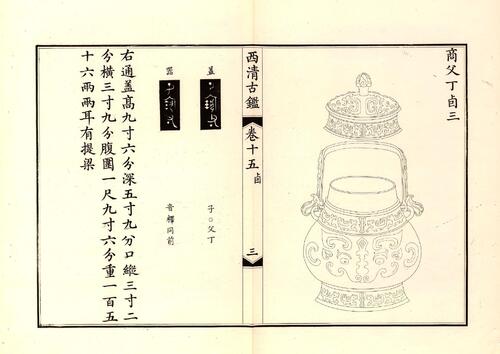 商父丁卣三
西清古鑑
卷十五 卣
三
蓋
子○父丁
器
音釋同前
右通蓋高九寸六分深五寸九分口縱三寸二
分橫三寸九分腹圍一尺九寸六分重一百五
十六兩兩耳有提梁